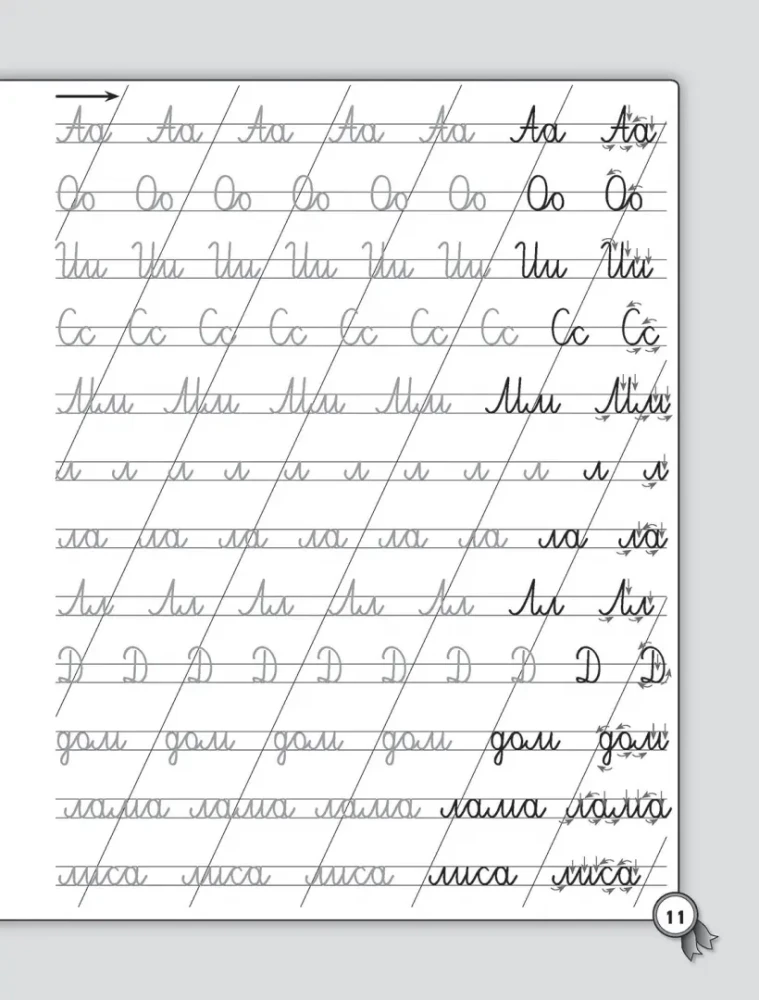 Аа Аа Аа Аа Аа Аа Аа
Оо Оо Оо Оо Оо Оо Оо Оо
Ии Ии Ии Ии Ии Ии Ии Ии
Сс Сс Сс Сс Сс Сс Сс Сс Сс
Мм Мм Мм Мм Мм Мм
л л л л л л л л л л л
ла ла ла ла ла ла ла ла
Лл Лл Лл Лл Лл Лл Лл
Д Д Д Д Д Д Д Д Д Д
дом дом дом дом дом дом
лама лама лама лама лама
лиса лиса лиса лиса лиса
11